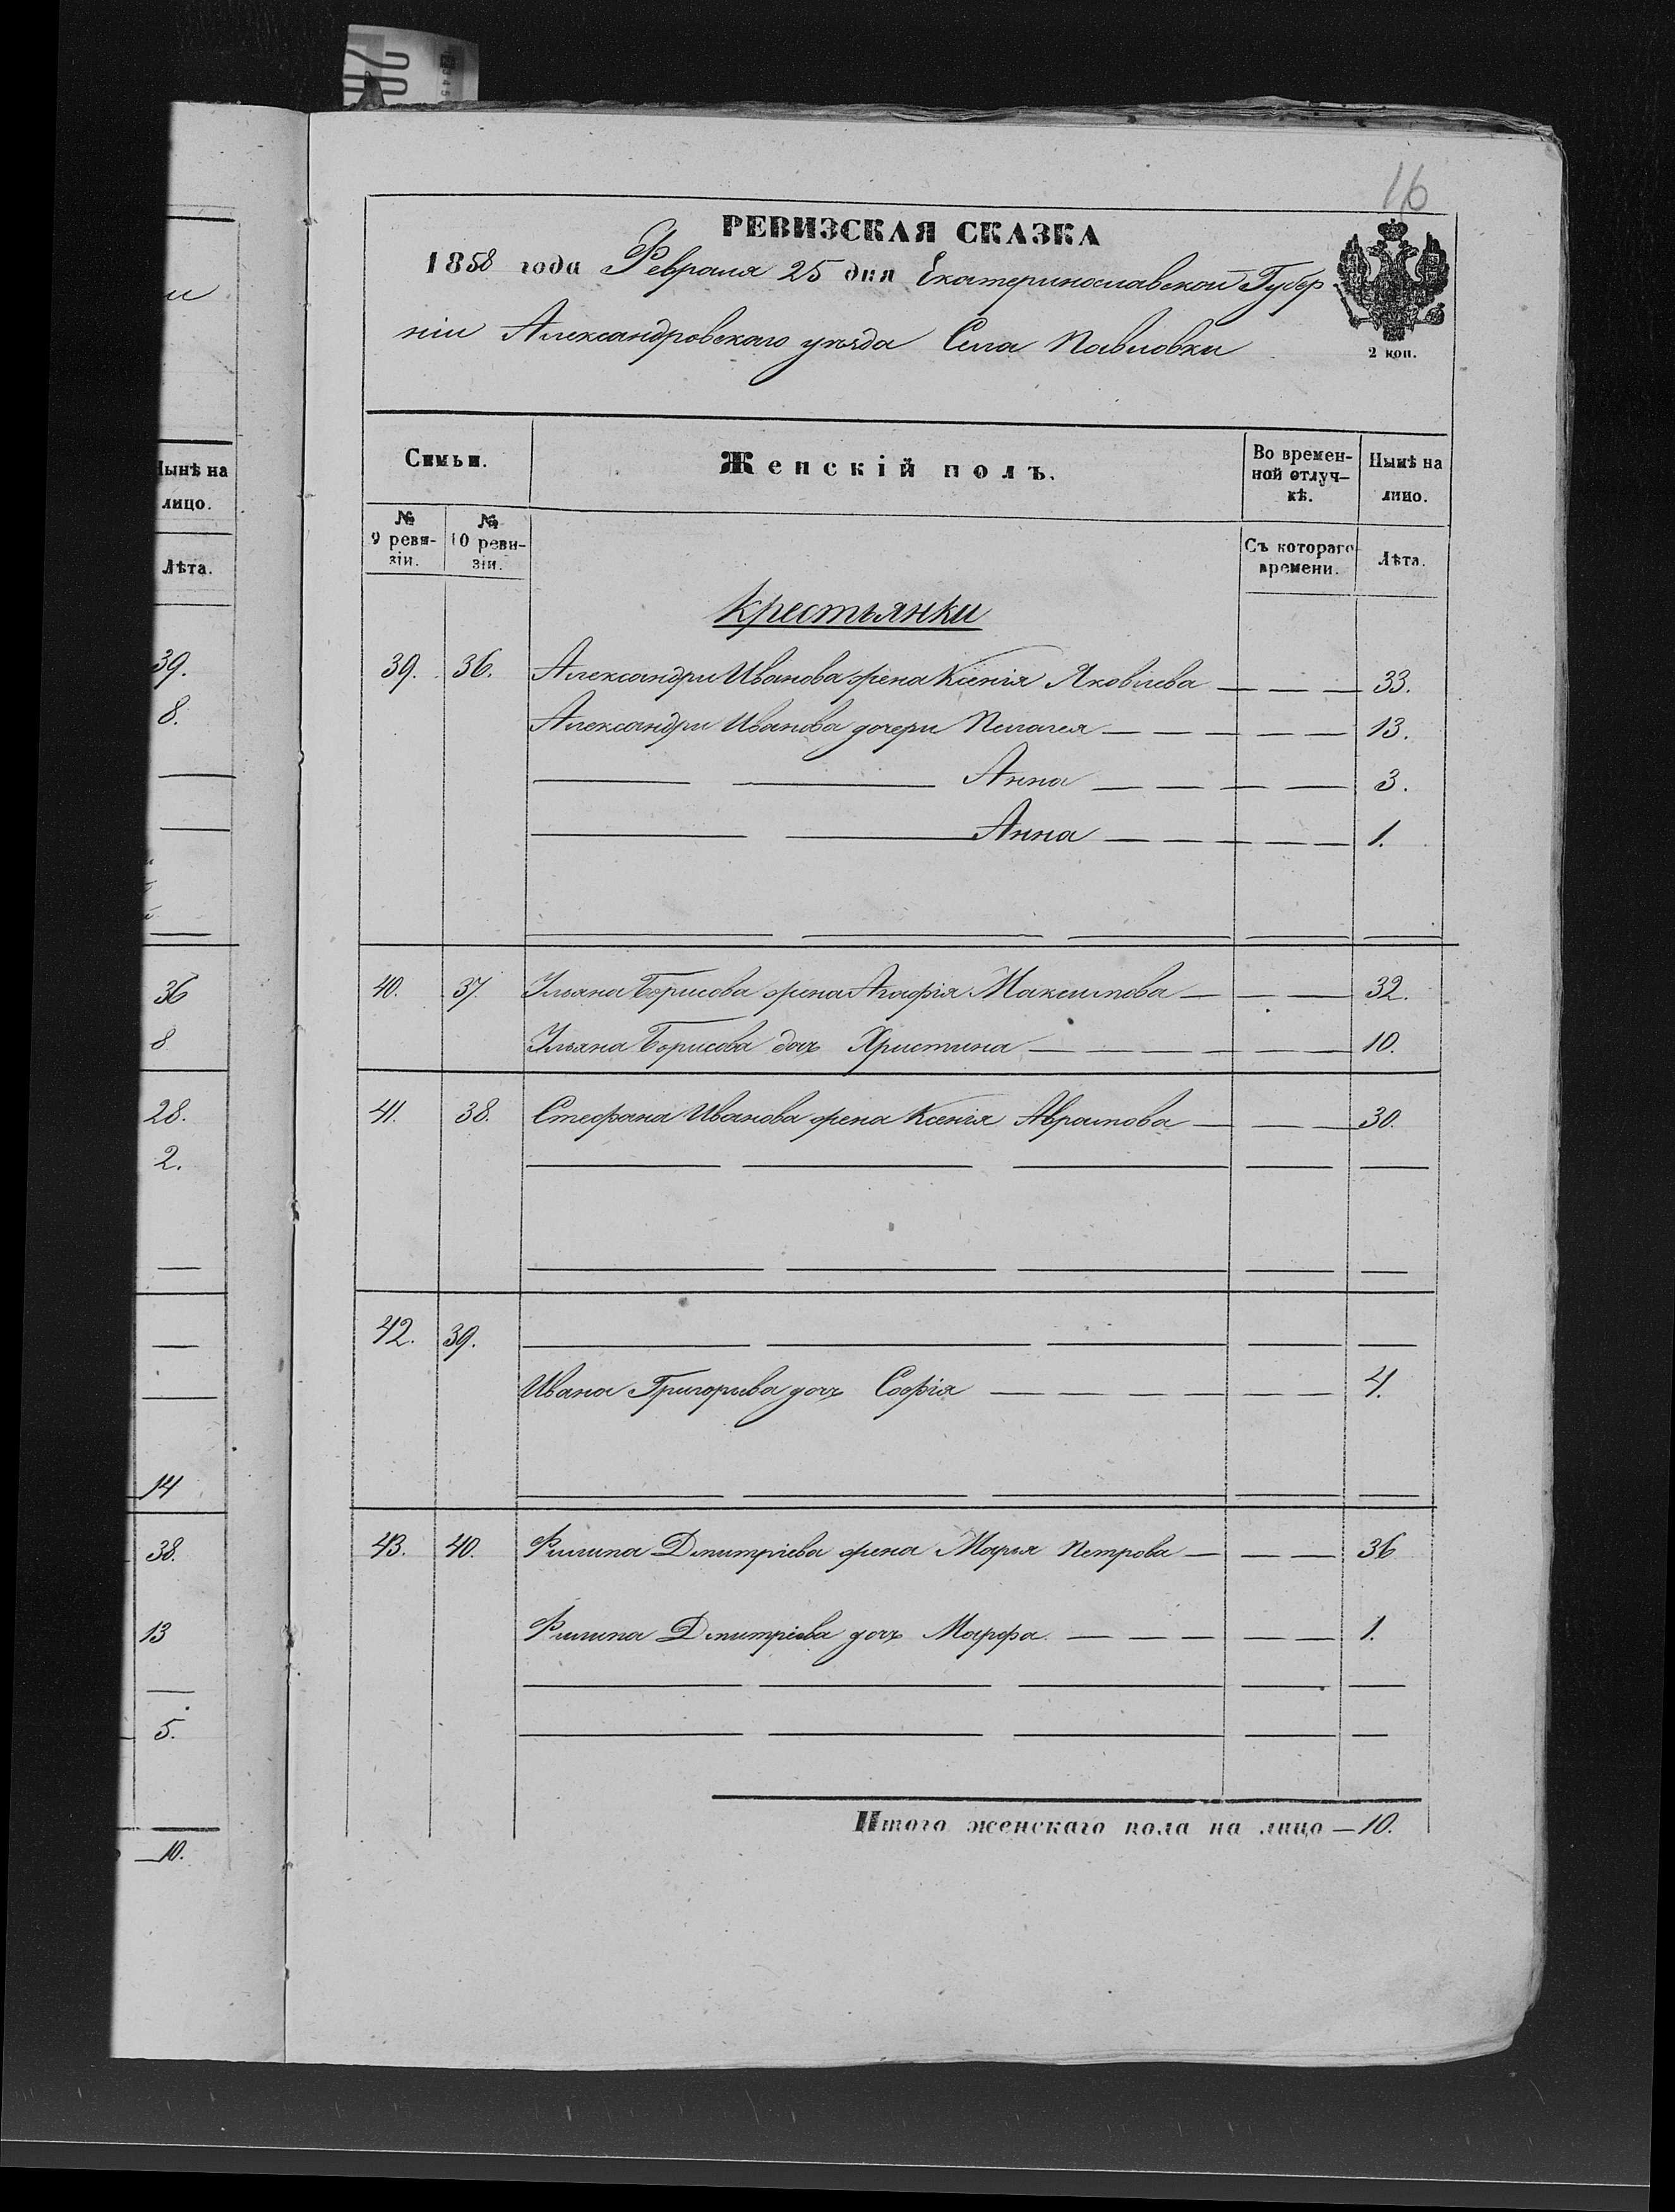 16
РЕВИЗСКАЯ СКАЗКА
1858 года Февраля 25 дня Екатеринославской Губер
ніи Александровскаго уѣзда Села Павловки
2 коп.
Семьи. Женскій полъ. Во времен-ной отлуч-кѣ. Нынѣ на лицо.
№ 9 реви-зіи. № 10 реви-зіи. Съ котораго времени. Лѣта.
Крестьянки
39. 36. Александри Иванова жена Ксенія Яковлева 33.
Александри Иванова дочери Пелагея 13.
Анна 3.
Анна 1.
40. 37. Ильяна Борисова жена Агафія Максимова 32.
Ильяна Борисова дочь Христина 10.
41. 38. Стефана Иванова жена Ксенія Аврамова 30.
42. 39.
Ивана Григорьева дочь Софія 4.
43. 40. Филипа Дмитріева жена Марья Петрова 36
Филипа Дмитріева дочь Марфа 1.
Итого женскаго пола на лицо 10.
Нынѣ на
лицо.
Лѣта.
39.
8.
36
8
28.
2.
14
38.
13
5.
10.